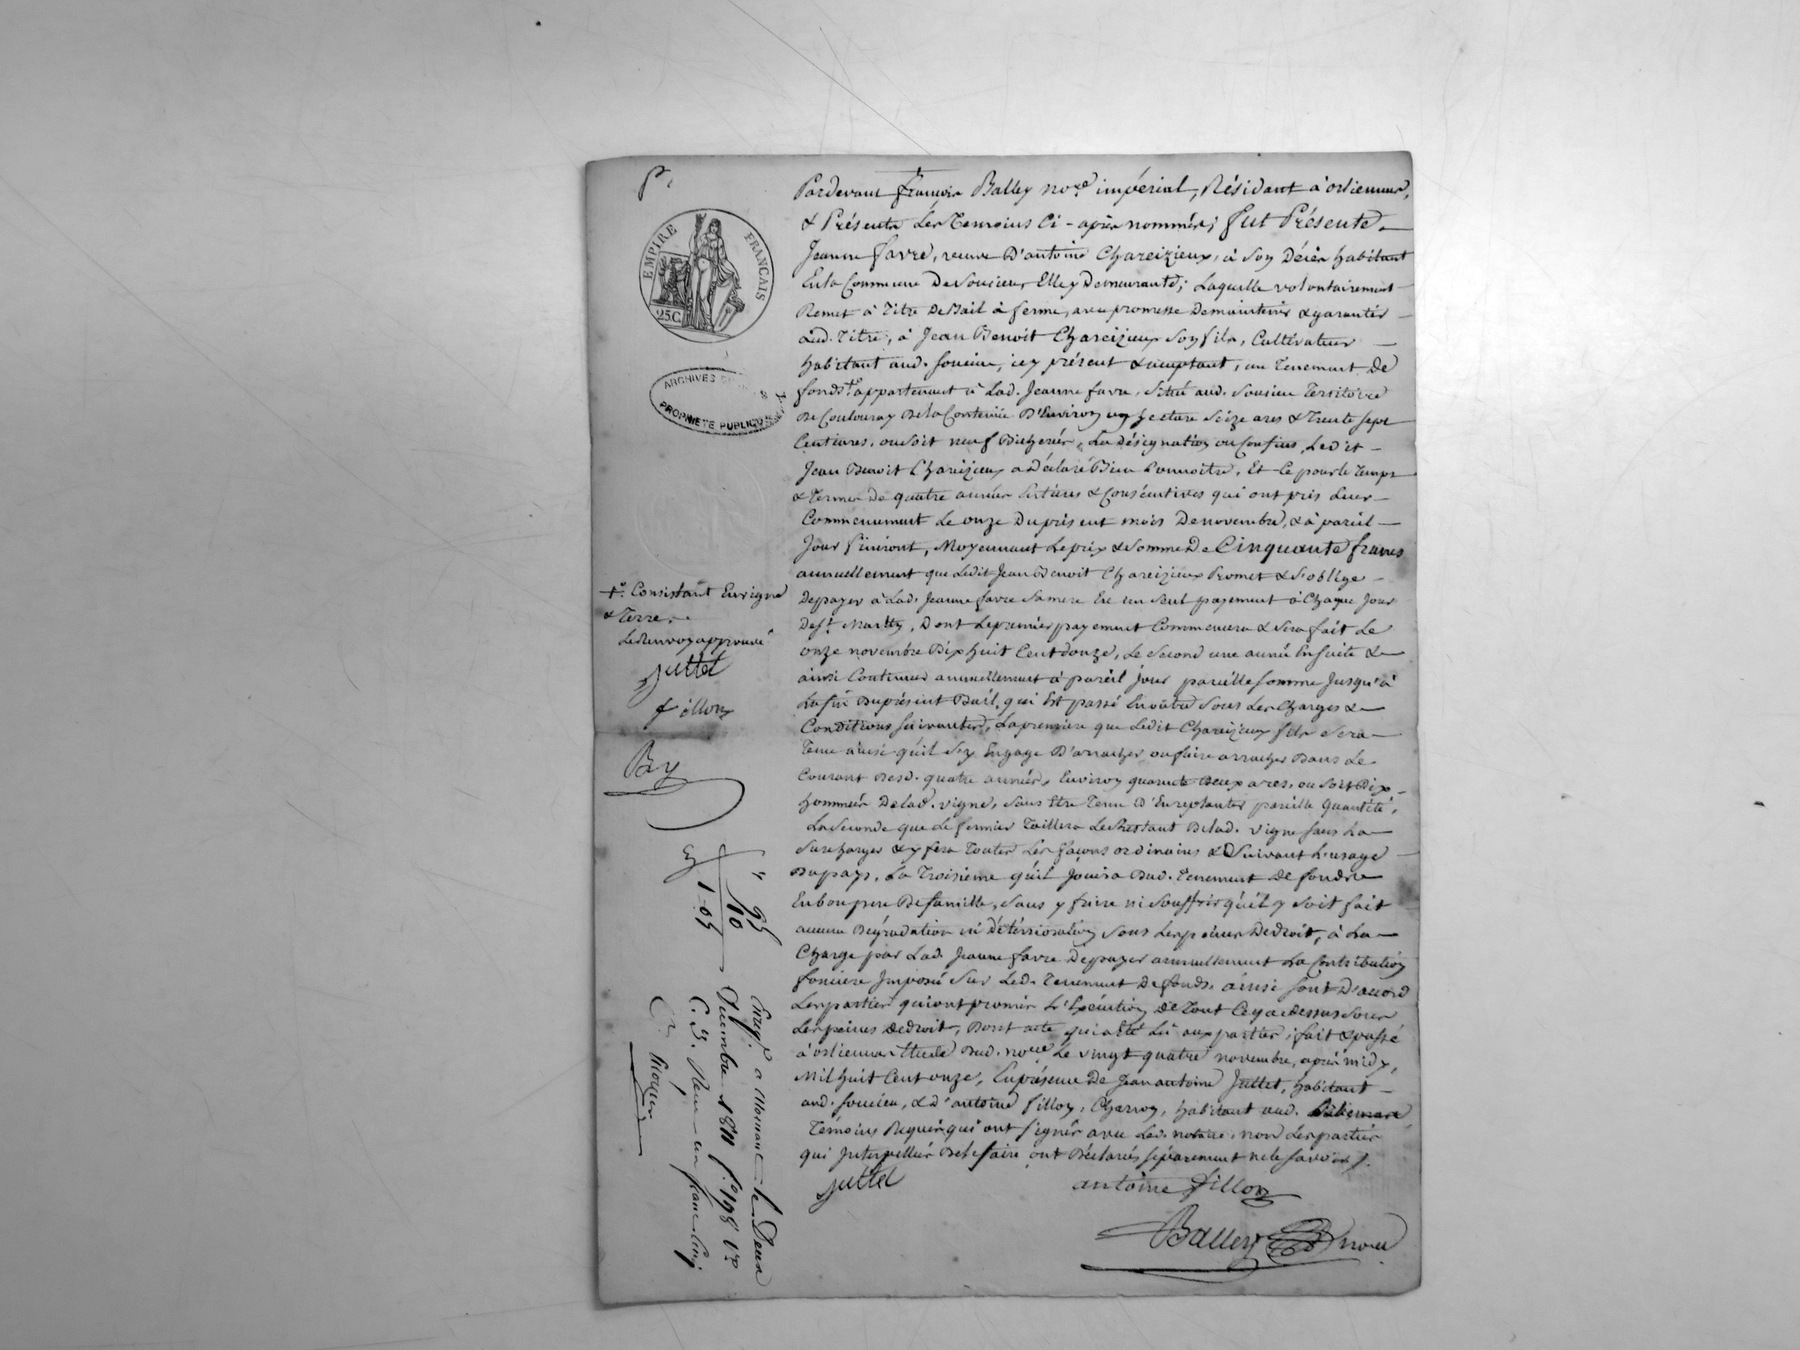 P.
EMPIRE FRANÇAIS
25 C.
ARCHIVES
PROPRIETE PUBLIQUE
Pardevant françois Balley no.re impérial, Résidant à orlienas,
& Présents Les Temoins Ci-après nommés; fut Présente
Jeanne favre, veuve D'antoine Chareizieux, à Son Décès habitant
En la Commune De Soucieu Elle y Demeurante; Laquelle volontairement
Remet à Titre De Bail à ferme, avec promesse De maintenir & garantir
aud. Titre, à Jean Benoit Chareizieux Son fils, Cultivateur
habitant aud. Soucieu, icy présent & acceptant, un Tenement De
fonds +.° appartenant à Lad. Jeanne favre, Situé aud. Soucieu Territoire
De Coulouray De la Contenue D'Environ un hectare Seize ares & Trente Sept
Centiares, ou Soit neuf Bicherées, La Désignation ou Confins Ledit
Jean Benoit Chareizieux a Déclaré Bien Connoitre, Et Ce pour le Temps
& Terme De quatre années Entières & Consécutives qui ont pris Leur
Commencement Le onze Du présent mois De novembre, & à pareil
Jour finiront, Moyennant Le prix & Somme De Cinquante francs
annuellement que Ledit Jean Benoit Chareizieux Promet & S'oblige
De payer à Lad. Jeanne favre Sa mere En un Seul payement à Chaque Jour
De S.t Martin, Dont Le premier payement Commencera & Sera fait Le
onze novembre Dix huit Cent Douze, Le Second une année Ensuite &
ainsi Continuer annuellement à pareil Jour pareille Somme Jusqu'à
La fin Du présent Bail, qui Est passé En outre Sous Les Charges &
Conditions Suivantes, La premiere que Ledit Chareizieux fils Sera
Tenu ainsi qu'il S'en Engage D'arracher ou faire arracher Dans Le
Courant Desd. quatre années, Environ quarante Deux ares, ou Soit Dix
hommées De lad. vigne, Sans Etre Tenu D'En replanter pareille quantité,
La Seconde que Le fermier Taillera Le Restant De lad. vigne Sans La
Surcharger & y fera Toutes Les façons ordinaires & Suivant L'usage
Du pays, La Troisieme qu'il Jouira Dud. Tenement De fonds
En bon pere De famille, Sans y faire ni Souffrir qu'il y Soit fait
aucune Dégradation ni Détérioration Sous Les peines De Droit, à La
Charge par Lad. Jeanne favre De payer annuellement La Contribution
fonciere Imposée Sur Led. Tenement De fonds. ainsi Sont D'accord
Les parties qui ont promis L'Exécution De Tout Ce que Dessus Sous
Les peines De Droit, Dont acte qui a été Lû aux parties, fait & passé
à orlienas Etude Dud. no.re Le vingt quatre novembre, après midy,
Mil huit Cent onze, En présence De Jean antoine Juttet, habitant
aud. Soucieu, & D'antoine fillon, Charron, habitant aud.
Témoins Requis qui ont Signés avec Led. notaire, non Les parties
qui Interpellées De le faire ont Déclarés Séparement ne le Savoir /.
juttet
antoine fillon
Balley no.re
+.° Consistant En vigne
& Terre.
Le Renvoy approuvé
juttet
fillon
By
95
10
1-05
Enreg.é a Mornant le Deux
Décembre 1811 f.° 198 V.°
C. 3. Reçu un franc cinq
C.es